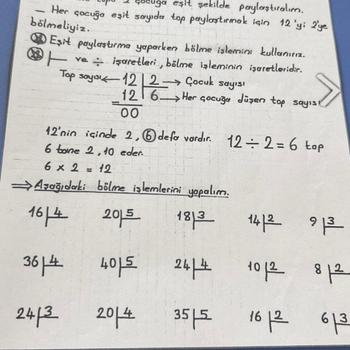 çocuğa eşit şekilde paylaştıralım.
— Her çocuğa eşit sayıda top paylaştırmak için 12'yi 2'ye
bölmeliyiz.
Eşit paylaştırma yaparken bölme işlemini kullanırız.
ve ÷ işaretleri, bölme işleminin işaretleridir.
Top sayısı ← 12 | 2 → Çocuk sayısı
12 | 6 → Her çocuğa düşen top sayısı
00
12'nin içinde 2, 6 defa vardır. 12 ÷ 2 = 6 top
6 tane 2, 10 eder.
6 x 2 = 12
⇒ Aşağıdaki bölme işlemlerini yapalım.
16 | 4 20 | 5 18 | 3 14 | 2 9 | 3
36 | 4 40 | 5 24 | 4 10 | 2 8 | 2
24 | 3 20 | 4 35 | 5 16 | 2 6 | 3